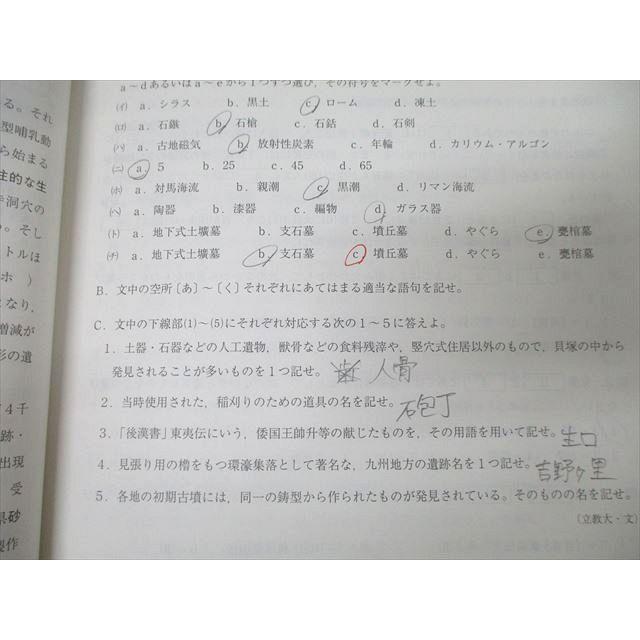 a～dあるいはa～eから1つずつ選び，その符号をマークせよ。
(イ) a．シラス b．黒土 c．ローム d．凍土
(ロ) a．石鏃 b．石槍 c．石銛 d．石剣
(ハ) a．古地磁気 b．放射性炭素 c．年輪 d．カリウム・アルゴン
(ニ) a．5 b．25 c．45 d．65
(ホ) a．対馬海流 b．親潮 c．黒潮 d．リマン海流
(ヘ) a．陶器 b．漆器 c．編物 d．ガラス器
(ト) a．地下式土壙墓 b．支石墓 c．墳丘墓 d．やぐら e．甕棺墓
(チ) a．地下式土壙墓 b．支石墓 c．墳丘墓 d．やぐら e．甕棺墓
B．文中の空所〔あ〕～〔く〕それぞれにあてはまる適当な語句を記せ。
C．文中の下線部(1)～(5)にそれぞれ対応する次の1～5に答えよ。
1．土器・石器などの人工遺物，獣骨などの食料残滓や，竪穴式住居以外のもので，貝塚の中から
発見されることが多いものを1つ記せ。 人骨
2．当時使用された，稲刈りのための道具の名を記せ。 石包丁
3．「後漢書」東夷伝にいう，倭国王帥升等の献じたものを，その用語を用いて記せ。 生口
4．見張り用の櫓をもつ環濠集落として著名な，九州地方の遺跡名を1つ記せ。 吉野ヶ里
5．各地の初期古墳には，同一の鋳型から作られたものが発見されている。そのものの名を記せ。
（立教大・文）
る。それ
型哺乳動
ら始まる
主的な生
洞穴の
る。そし
トルほ
ホ ）
なり，
増減が
形の遺
4千
跡・
出現
受
県砂
製作